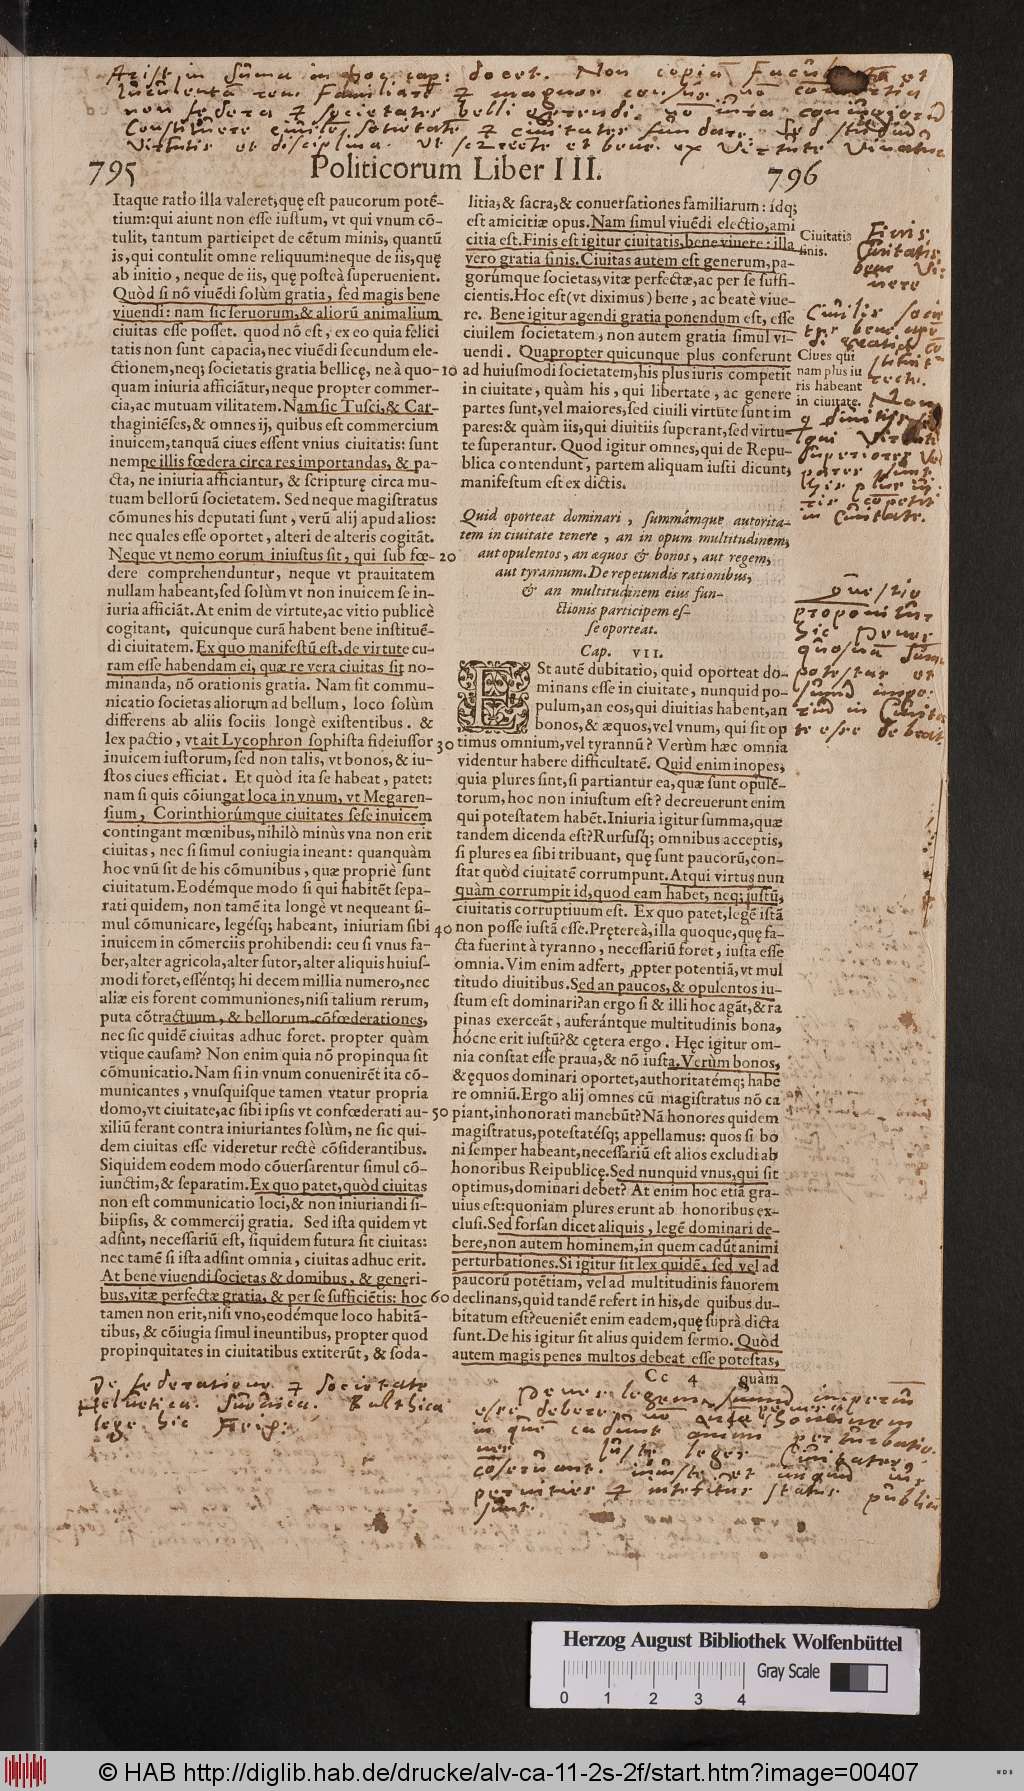 Arist. in sum̃a in hoc cap: docet. Non copiã
non fœdera & societates belli gerendi
Virtutis et disciplina. Ut sc: recte et bene ex virtute vivatur
795
Politicorum Liber III.
796
Itaque ratio illa valeret, quę est paucorum potẽ-
tium: qui aiunt non esse iustum, vt qui vnum cõ-
tulit, tantum participet de cẽtum minis, quantũ
is, qui contulit omne reliquum: neque de iis, quę
ab initio, neque de iis, quę posteà superuenient.
Quòd si nõ viuẽdi solùm gratia, sed magis bene
viuendi: nam sic seruorum, & aliorũ animalium
ciuitas esse posset. quod nõ est, ex eo quia felici
tatis non sunt capacia, nec viuẽdi secundum ele-
ctionem, neq; societatis gratia bellicę, ne à quo-
quam iniuria afficiãtur, neque propter commer-
cia, ac mutuam vilitatem. Nam sic Tusci, & Car-
thaginiẽses, & omnes ij, quibus est commercium
inuicem, tanquã ciues essent vnius ciuitatis: sunt
nempe illis fœdera circa res importandas, & pa-
cta, ne iniuria afficiantur, & scripturę circa mu-
tuam bellorũ societatem. Sed neque magistratus
cõmunes his deputati sunt, verũ alij apud alios:
nec quales esse oportet, alteri de alteris cogitãt.
Neque vt nemo eorum iniustus sit, qui sub fœ-
dere comprehenduntur, neque vt prauitatem
nullam habeant, sed solùm vt non inuicem se in-
iuria afficiãt. At enim de virtute, ac vitio publicè
cogitant, quicunque curã habent bene instituẽ-
di ciuitatem. Ex quo manifestũ est, de virtute cu-
ram esse habendam ei, quæ re vera ciuitas sit no-
minanda, nõ orationis gratia. Nam sit commu-
nicatio societas aliorum ad bellum, loco solùm
differens ab aliis sociis longè existentibus. &
lex pactio, vt ait Lycophron sophista fideiussor
inuicem iustorum, sed non talis, vt bonos, & iu-
stos ciues efficiat. Et quòd ita se habeat, patet:
nam si quis cõiungat loca in vnum, vt Megaren-
sium, Corinthiorúmque ciuitates sese inuicem
contingant mœnibus, nihilò minùs vna non erit
ciuitas, nec si simul coniugia ineant: quanquàm
hoc vnũ sit de his cõmunibus, quæ propriè sunt
ciuitatum. Eodémque modo si qui habitẽt sepa-
rati quidem, non tamẽ ita longè vt nequeant si-
mul cõmunicare, legésq; habeant, iniuriam sibi
inuicem in cõmerciis prohibendi: ceu si vnus fa-
ber, alter agricola, alter sutor, alter aliquis huius-
modi foret, essẽntq; hi decem millia numero, nec
aliæ eis forent communiones, nisi talium rerum,
puta cõtractuum, & bellorum cõfœderationes,
nec sic quidẽ ciuitas adhuc foret. propter quàm
vtique causam? Non enim quia nõ propinqua sit
cõmunicatio. Nam si in vnum conuenirẽt ita cõ-
municantes, vnusquisque tamen vtatur propria
domo, vt ciuitate, ac sibi ipsis vt confœderati au-
xiliũ ferant contra iniuriantes solùm, ne sic qui-
dem ciuitas esse videretur rectè cõsiderantibus.
Siquidem eodem modo cõuersarentur simul cõ-
iunctim, & separatim. Ex quo patet, quòd ciuitas
non est communicatio loci, & non iniuriandi si-
biipsis, & commercij gratia. Sed ista quidem vt
adsint, necessariũ est, siquidem futura sit ciuitas:
nec tamẽ si ista adsint omnia, ciuitas adhuc erit.
At bene viuendi societas & domibus, & generi-
bus, vitæ perfectæ gratia, & per se sufficiẽtis: hoc
tamen non erit, nisi vno, eodémque loco habitã-
tibus, & cõiugia simul ineuntibus, propter quod
propinquitates in ciuitatibus extiterũt, & soda-
10
20
30
40
50
60
litia, & sacra, & conuersationes familiarum: idq;
est amicitiæ opus. Nam simul viuẽdi electio, ami
citia est. Finis est igitur ciuitatis, bene viuere: illa
vero gratia finis. Ciuitas autem est generum, pa-
gorúmque societas, vitæ perfectæ, ac per se suffi-
cientis. Hoc est (vt diximus) bene, ac beatè viue-
re. Bene igitur agendi gratia ponendum est, esse
ciuilem societatem, non autem gratia simul vi-
uendi. Quapropter quicunque plus conferunt
ad huiusmodi societatem, his plus iuris competit
in ciuitate, quàm his, qui libertate, ac genere
partes sunt, vel maiores, sed ciuili virtute sunt im
pares: & quàm iis, qui diuitiis superant, sed virtu-
te superantur. Quod igitur omnes, qui de Repu-
blica contendunt, partem aliquam iusti dicunt,
manifestum est ex dictis.
Quid oporteat dominari, summámque autorita-
tem in ciuitate tenere, an in opum multitudinem,
aut opulentos, an æquos & bonos, aut regem,
aut tyrannum. De repetundis rationibus,
& an multitudinem eius fun-
ctionis participem es-
se oporteat.
Cap. VII.
ESt autẽ dubitatio, quid oporteat do-
minans esse in ciuitate, nunquid po-
pulum, an eos, qui diuitias habent, an
bonos, & æquos, vel vnum, qui sit op
timus omnium, vel tyrannũ? Verùm hæc omnia
videntur habere difficultatẽ. Quid enim inopes,
quia plures sint, si partiantur ea, quæ sunt opulẽ-
torum, hoc non iniustum est? decreuerunt enim
qui potestatem habẽt. Iniuria igitur summa, quæ
tandem dicenda est? Rursusq; omnibus acceptis,
si plures ea sibi tribuant, quę sunt paucorũ, con-
stat quòd ciuitatẽ corrumpunt. Atqui virtus nun
quàm corrumpit id, quod eam habet, neq; iustũ,
ciuitatis corruptiuum est. Ex quo patet, legẽ istã
non posse iustã esse. Prętereà, illa quoque, quę fa-
cta fuerint à tyranno, necessariũ foret, iusta esse
omnia. Vim enim adfert, ꝓpter potentiã, vt mul
titudo diuitibus. Sed an paucos, & opulentos iu-
stum est dominari? an ergo si & illi hoc agãt, & ra
pinas exerceãt, auferántque multitudinis bona,
hócne erit iustũ? & cętera ergo. Hęc igitur om-
nia constat esse praua, & nõ iusta. Verùm bonos,
& ęquos dominari oportet, authoritatémq; habe
re omniũ. Ergo alij omnes cũ magistratus nõ ca
piant, inhonorati manebũt? Nã honores quidem
magistratus, potestatésq; appellamus: quos si bo
ni semper habeant, necessariũ est alios excludi ab
honoribus Reipublicę. Sed nunquid vnus, qui sit
optimus, dominari debet? At enim hoc etiã gra-
uius est: quoniam plures erunt ab honoribus ex-
clusi. Sed forsan dicet aliquis, legẽ dominari de-
bere, non autem hominem, in quem cadũt animi
perturbationes. Si igitur sit lex quidẽ, sed vel ad
paucorũ potẽtiam, vel ad multitudinis fauorem
declinans, quid tandẽ refert in his, de quibus du-
bitatum est? eueniẽt enim eadem, quę suprà dicta
sunt. De his igitur sit alius quidem sermo. Quòd
autem magis penes multos debeat esse potestas,
Cc 4 quàm
Ciuitatis
finis.
Finis
Civitatis
bene vi-
vere
Ciues qui
nam plus iu
ris habeant
in ciuitate.
in Civitate.
Quæstio
proponitur
hic Penes
potestas et
in Civita
te esse debeat.
De fœderatione & societate
Helvetica. Suevica. Balthica
lege hic Arist:
Penes legem, summũ imperiũ
esse debere, nõ autẽ penes hominem
in quẽ cadunt animi perturbatio-
nes
sunt.
Herzog August Bibliothek Wolfenbüttel
Gray Scale
0 1 2 3 4
© HAB http://diglib.hab.de/drucke/alv-ca-11-2s-2f/start.htm?image=00407